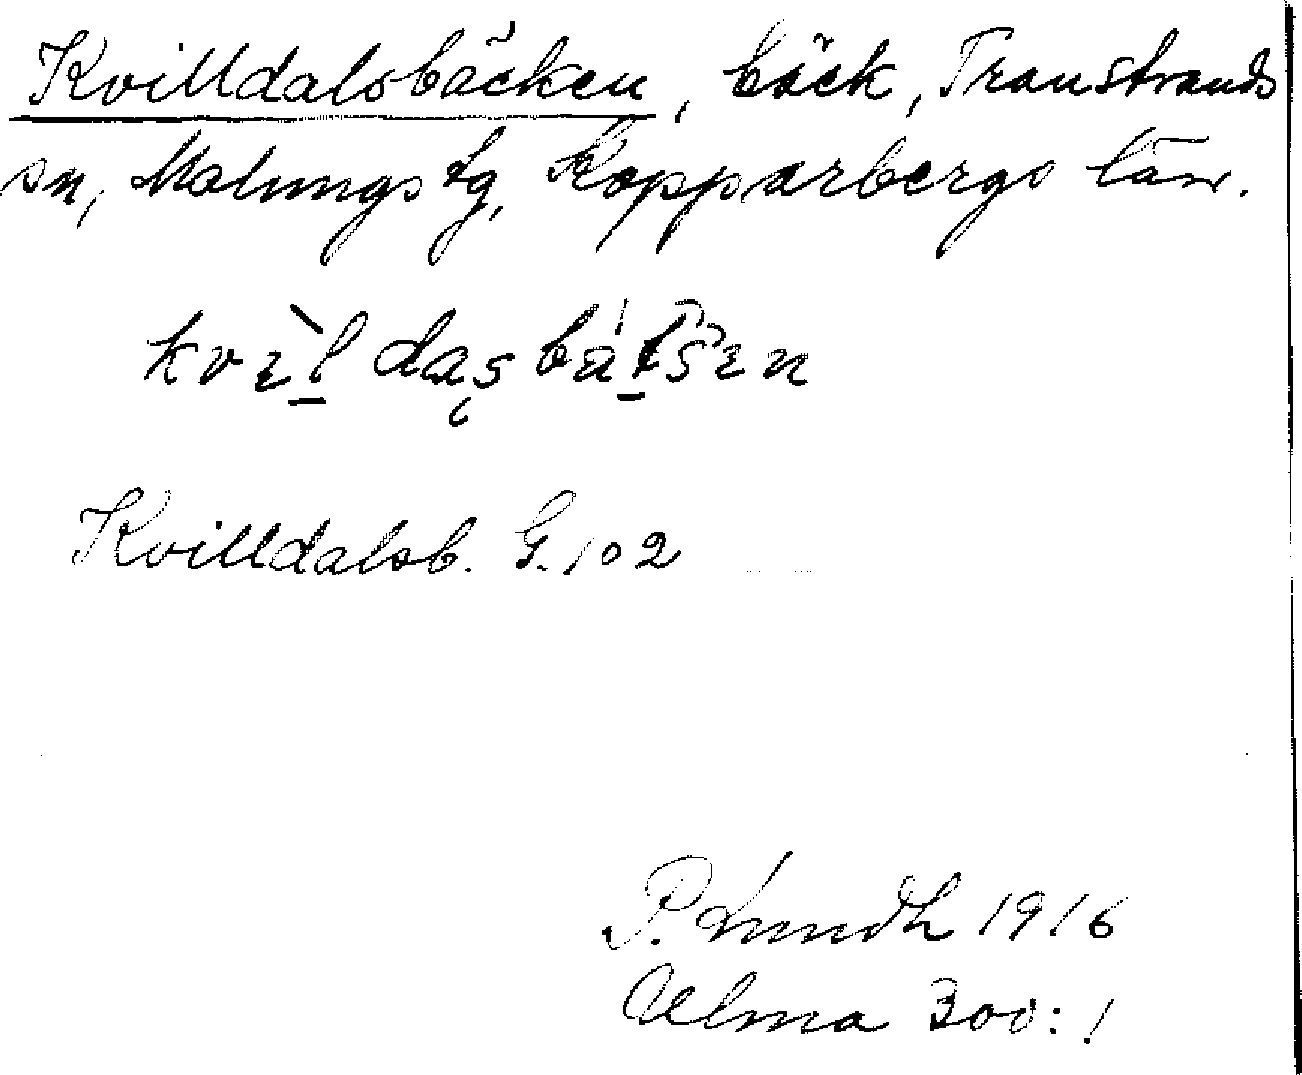 Kvilldalsbäcken, bäck, Transtrands
sn, Malungs tg, Kopparbergs län.
Kvilldalsb. G. 102
P. Lundh 1916
Ulma 300:1